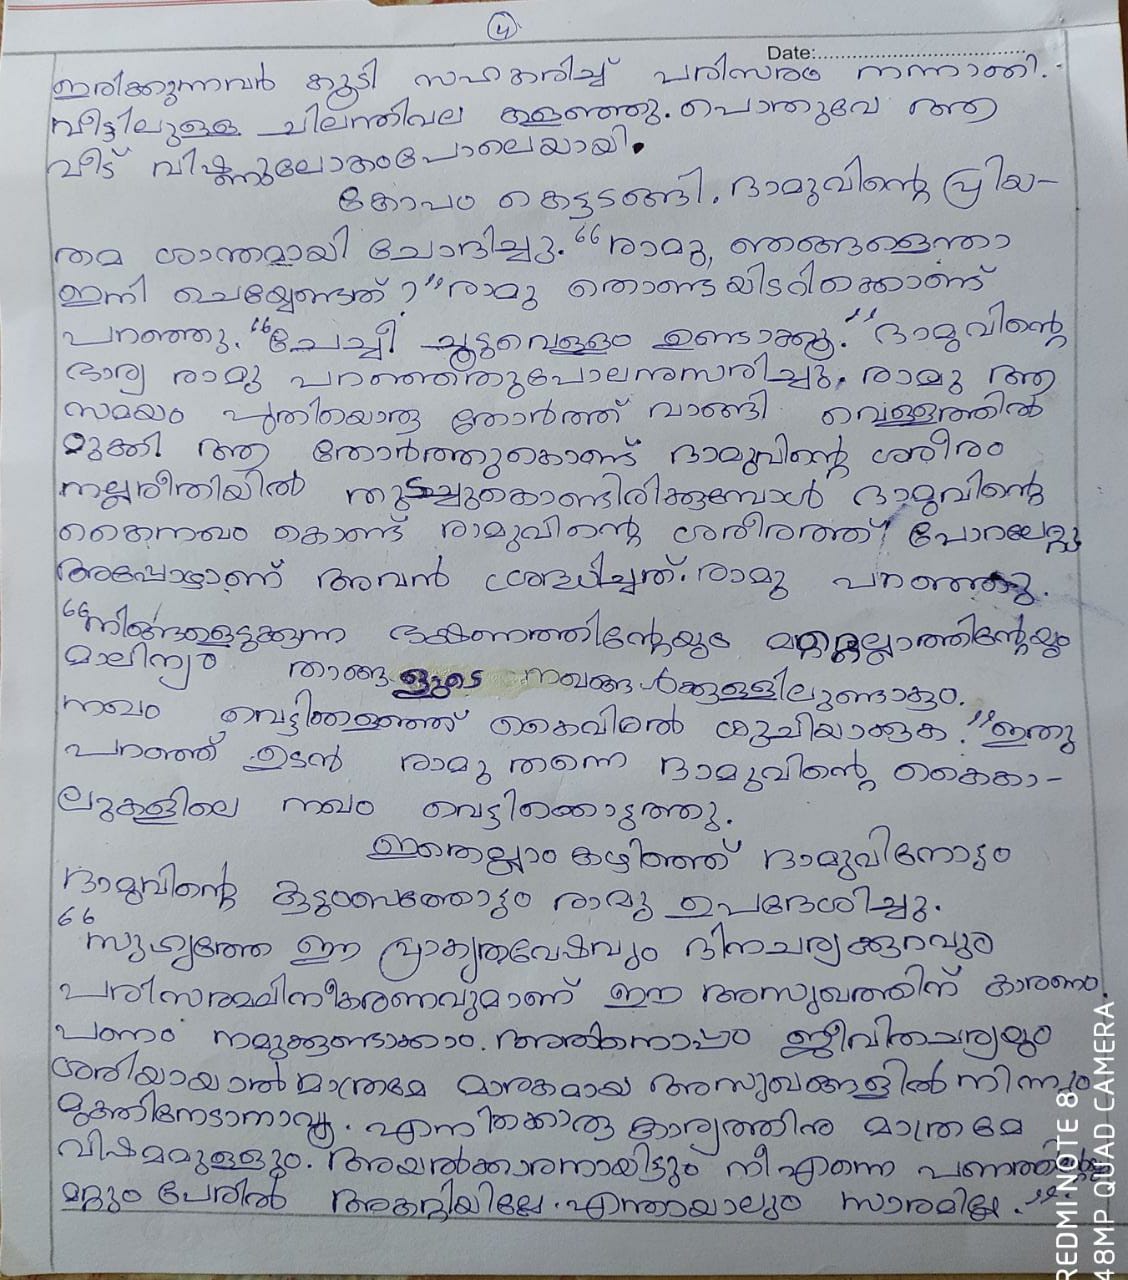 4
Date:
ഇരിക്കുന്നവർ കൂടി സഹകരിച്ച് പരിസരം നന്നാക്കി.
വീട്ടിലുള്ള ചിലന്തിവല കളഞ്ഞു. പൊതുവേ ആ
വീട് വിഷ്ണുലോകംപോലെയായി.
കോപം കെട്ടടങ്ങി. ദാമുവിന്റെ പ്രിയ-
തമ ശാന്തമായി ചോദിച്ചു. "രാമു, ഞങ്ങളെന്താ
ഇനി ചെയ്യേണ്ടത്?" രാമു തൊണ്ടയിടറിക്കൊണ്ട്
പറഞ്ഞു. "ചേച്ചീ ചൂടുവെള്ളം ഉണ്ടാക്കൂ." ദാമുവിന്റെ
ഭാര്യ രാമു പറഞ്ഞതുപോലനുസരിച്ചു. രാമു ആ
സമയം പുതിയൊരു തോർത്ത് വാങ്ങി വെള്ളത്തിൽ
മുക്കി ആ തോർത്തുകൊണ്ട് ദാമുവിന്റെ ശരീരം
നല്ലരീതിയിൽ തുടച്ചുകൊണ്ടിരിക്കുമ്പോൾ ദാമുവിന്റെ
കൈനഖം കൊണ്ട് രാമുവിന്റെ ശരീരത്ത് പോറലേറ്റു
അപ്പോഴാണ് അവൻ ശ്രദ്ധിച്ചത്. രാമു പറഞ്ഞു.
"നിങ്ങളെടുക്കുന്ന ഭക്ഷണത്തിന്റേയും മറ്റെല്ലാത്തിന്റേയും
മാലിന്യം താങ്ങളുടെ നഖങ്ങൾക്കുള്ളിലുണ്ടാകും.
നഖം വെട്ടിക്കളഞ്ഞ് കൈവിരൽ ശുചിയാക്കുക." ഇതു
പറഞ്ഞ് ഉടൻ രാമു തന്നെ ദാമുവിന്റെ കൈകാ-
ലുകളിലെ നഖം വെട്ടിക്കൊടുത്തു.
ഇതെല്ലാം കഴിഞ്ഞ് ദാമുവിനോടും
ദാമുവിന്റെ കുടുംബത്തോടും രാമു ഉപദേശിച്ചു.
"സുഹൃത്തേ ഈ പ്രാകൃതവേഷവും ദിനചര്യക്കുറവും
പരിസരമലിനീകരണവുമാണ് ഈ അസുഖത്തിന് കാരണം.
പണം നമുക്കുണ്ടാക്കാം. അതിനൊപ്പം ജീവിതചര്യയും
ശരിയായാൽ മാത്രമേ മാരകമായ അസുഖങ്ങളിൽ നിന്നും
മുക്തിനേടാനാവൂ. എനിക്കൊരു കാര്യത്തിനു മാത്രമേ
വിഷമമുള്ളൂ. അയൽക്കാരനായിട്ടും നീ എന്നെ പണത്തിന്റെ
മറ്റും പേരിൽ അകറ്റിയില്ലേ. എന്തായാലും സാരമില്ല."
REDMI NOTE 8
48MP QUAD CAMERA